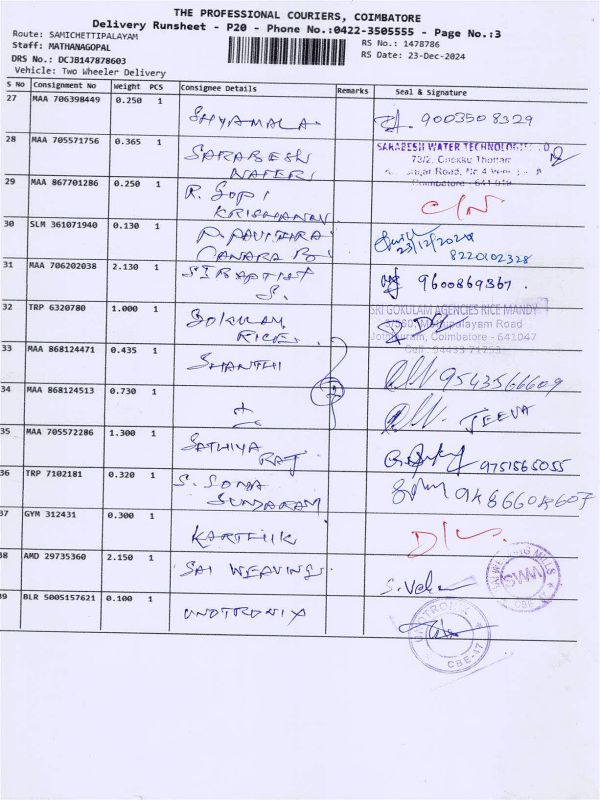 THE PROFESSIONAL COURIERS, COIMBATORE
Delivery Runsheet - P20 - Phone No.:0422-3505555 - Page No.:3
Route: SAMICHETTIPALAYAM
Staff: MATHANAGOPAL
RS No.: 1478786
DRS No.: DCJB147878603
RS Date: 23-Dec-2024
Vehicle: Two Wheeler Delivery
S No Consignment No Weight PCS Consignee Details Remarks Seal & Signature
27 MAA 706398449 0.250 1
SHYAMALA 9003508329
28 MAA 705571756 0.365 1
SARABESH WATER TECHNOLOGIES
SARABESH
WATERS
73/2, Chokku Thottam
Coimbatore - 641 019
29 MAA 867701286 0.250 1
R. Gopi
KRISHANAN
C/N
30 SLM 361071940 0.130 1
P. PAVITHRA
CANARA B
23/12/2024
8220102328
31 MAA 706202038 2.130 1
ST BAPTIST
S.
9600869367.
32 TRP 6320780 1.000 1
SRI GOKULAM AGENCIES RICE MANDY
GOKULAM
RICE
palayam Road
Coimbatore - 641047
Cell: 94433 71753
33 MAA 868124471 0.435 1
SHANTHI
9543566609
34 MAA 868124513 0.730 1
JEEVA
35 MAA 705572286 1.300 1
SATHIYA
RAJ
9751565055
36 TRP 7102181 0.320 1
S. SOMA
SUNDARAM
37 GYM 312431 0.300 1
KARTHIK
38 AMD 29735360 2.150 1
SAI WEAVINGS
SWM
CBE
39 BLR 5005157621 0.100 1
UNOTRONIX
UNOTRONIX
CBE-47